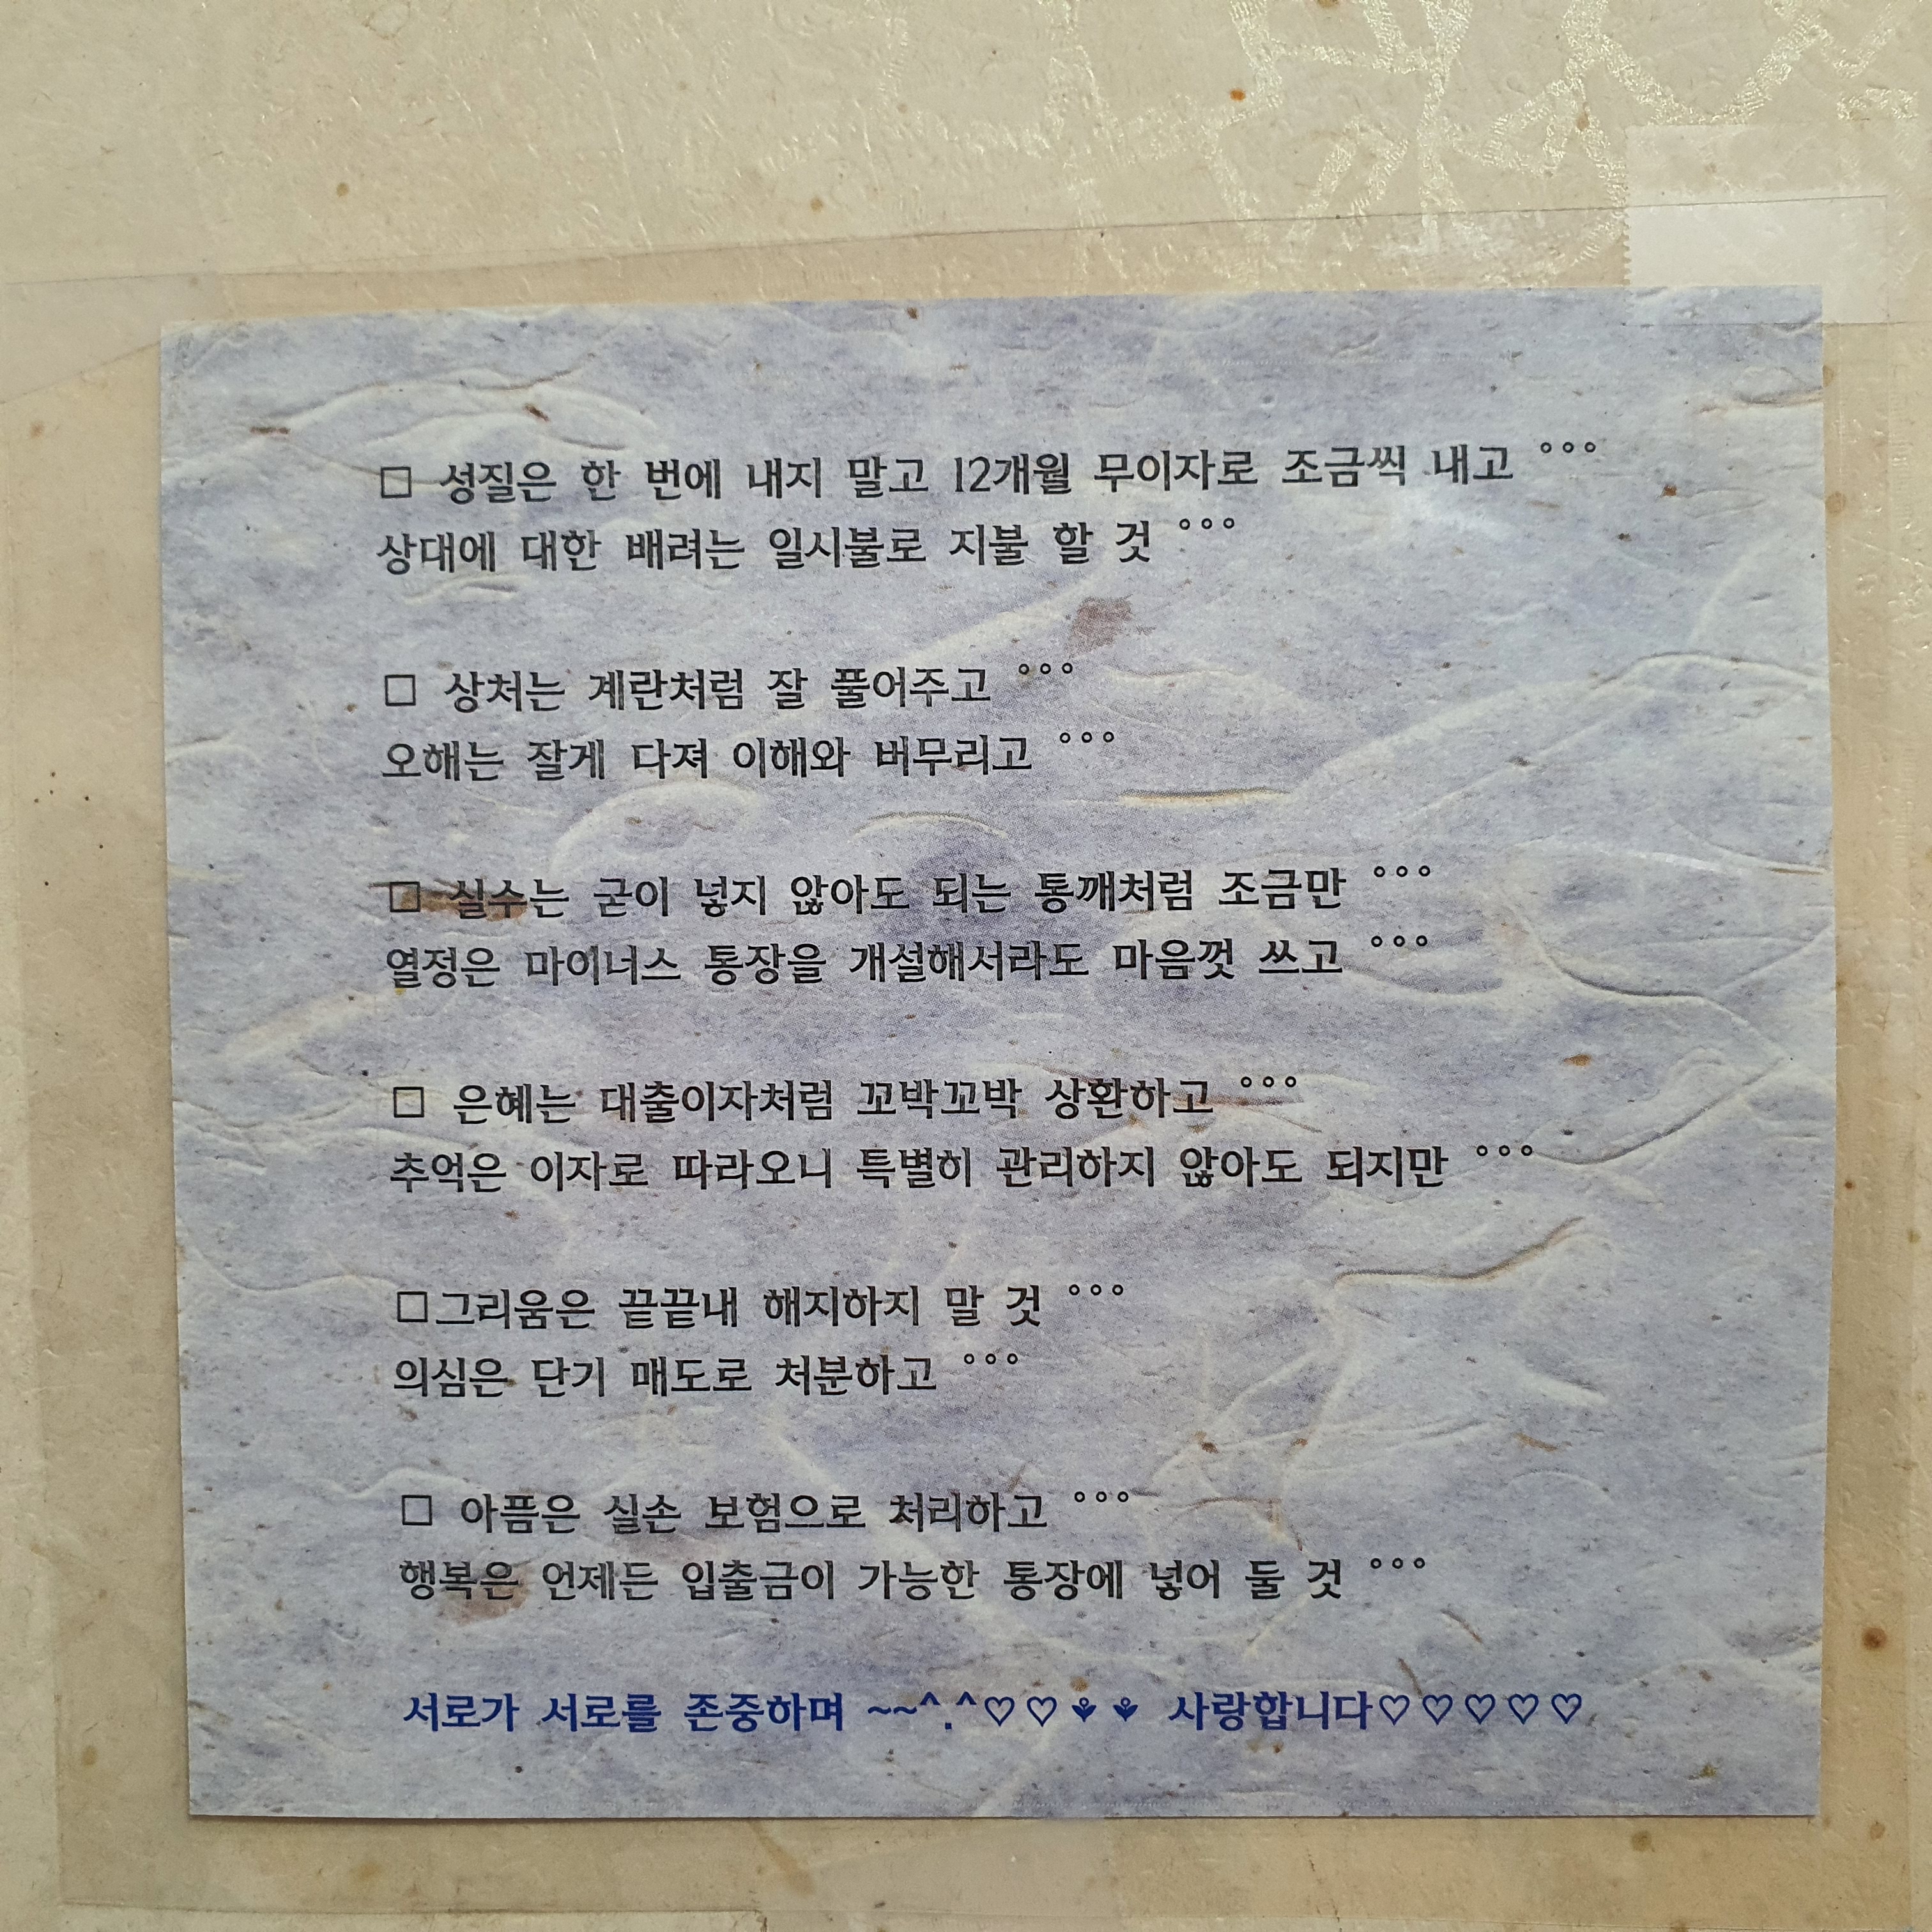 □ 성질은 한 번에 내지 말고 12개월 무이자로 조금씩 내고 °°°
상대에 대한 배려는 일시불로 지불 할 것 °°°
□ 상처는 계란처럼 잘 풀어주고 °°°
오해는 잘게 다져 이해와 버무리고 °°°
□ 실수는 굳이 넣지 않아도 되는 통깨처럼 조금만 °°°
열정은 마이너스 통장을 개설해서라도 마음껏 쓰고 °°°
□ 은혜는 대출이자처럼 꼬박꼬박 상환하고 °°°
추억은 이자로 따라오니 특별히 관리하지 않아도 되지만 °°°
□그리움은 끝끝내 해지하지 말 것 °°°
의심은 단기 매도로 처분하고 °°°
□ 아픔은 실손 보험으로 처리하고 °°°
행복은 언제든 입출금이 가능한 통장에 넣어 둘 것 °°°
서로가 서로를 존중하며 ~~^.^♡♡⚘⚘ 사랑합니다♡♡♡♡♡